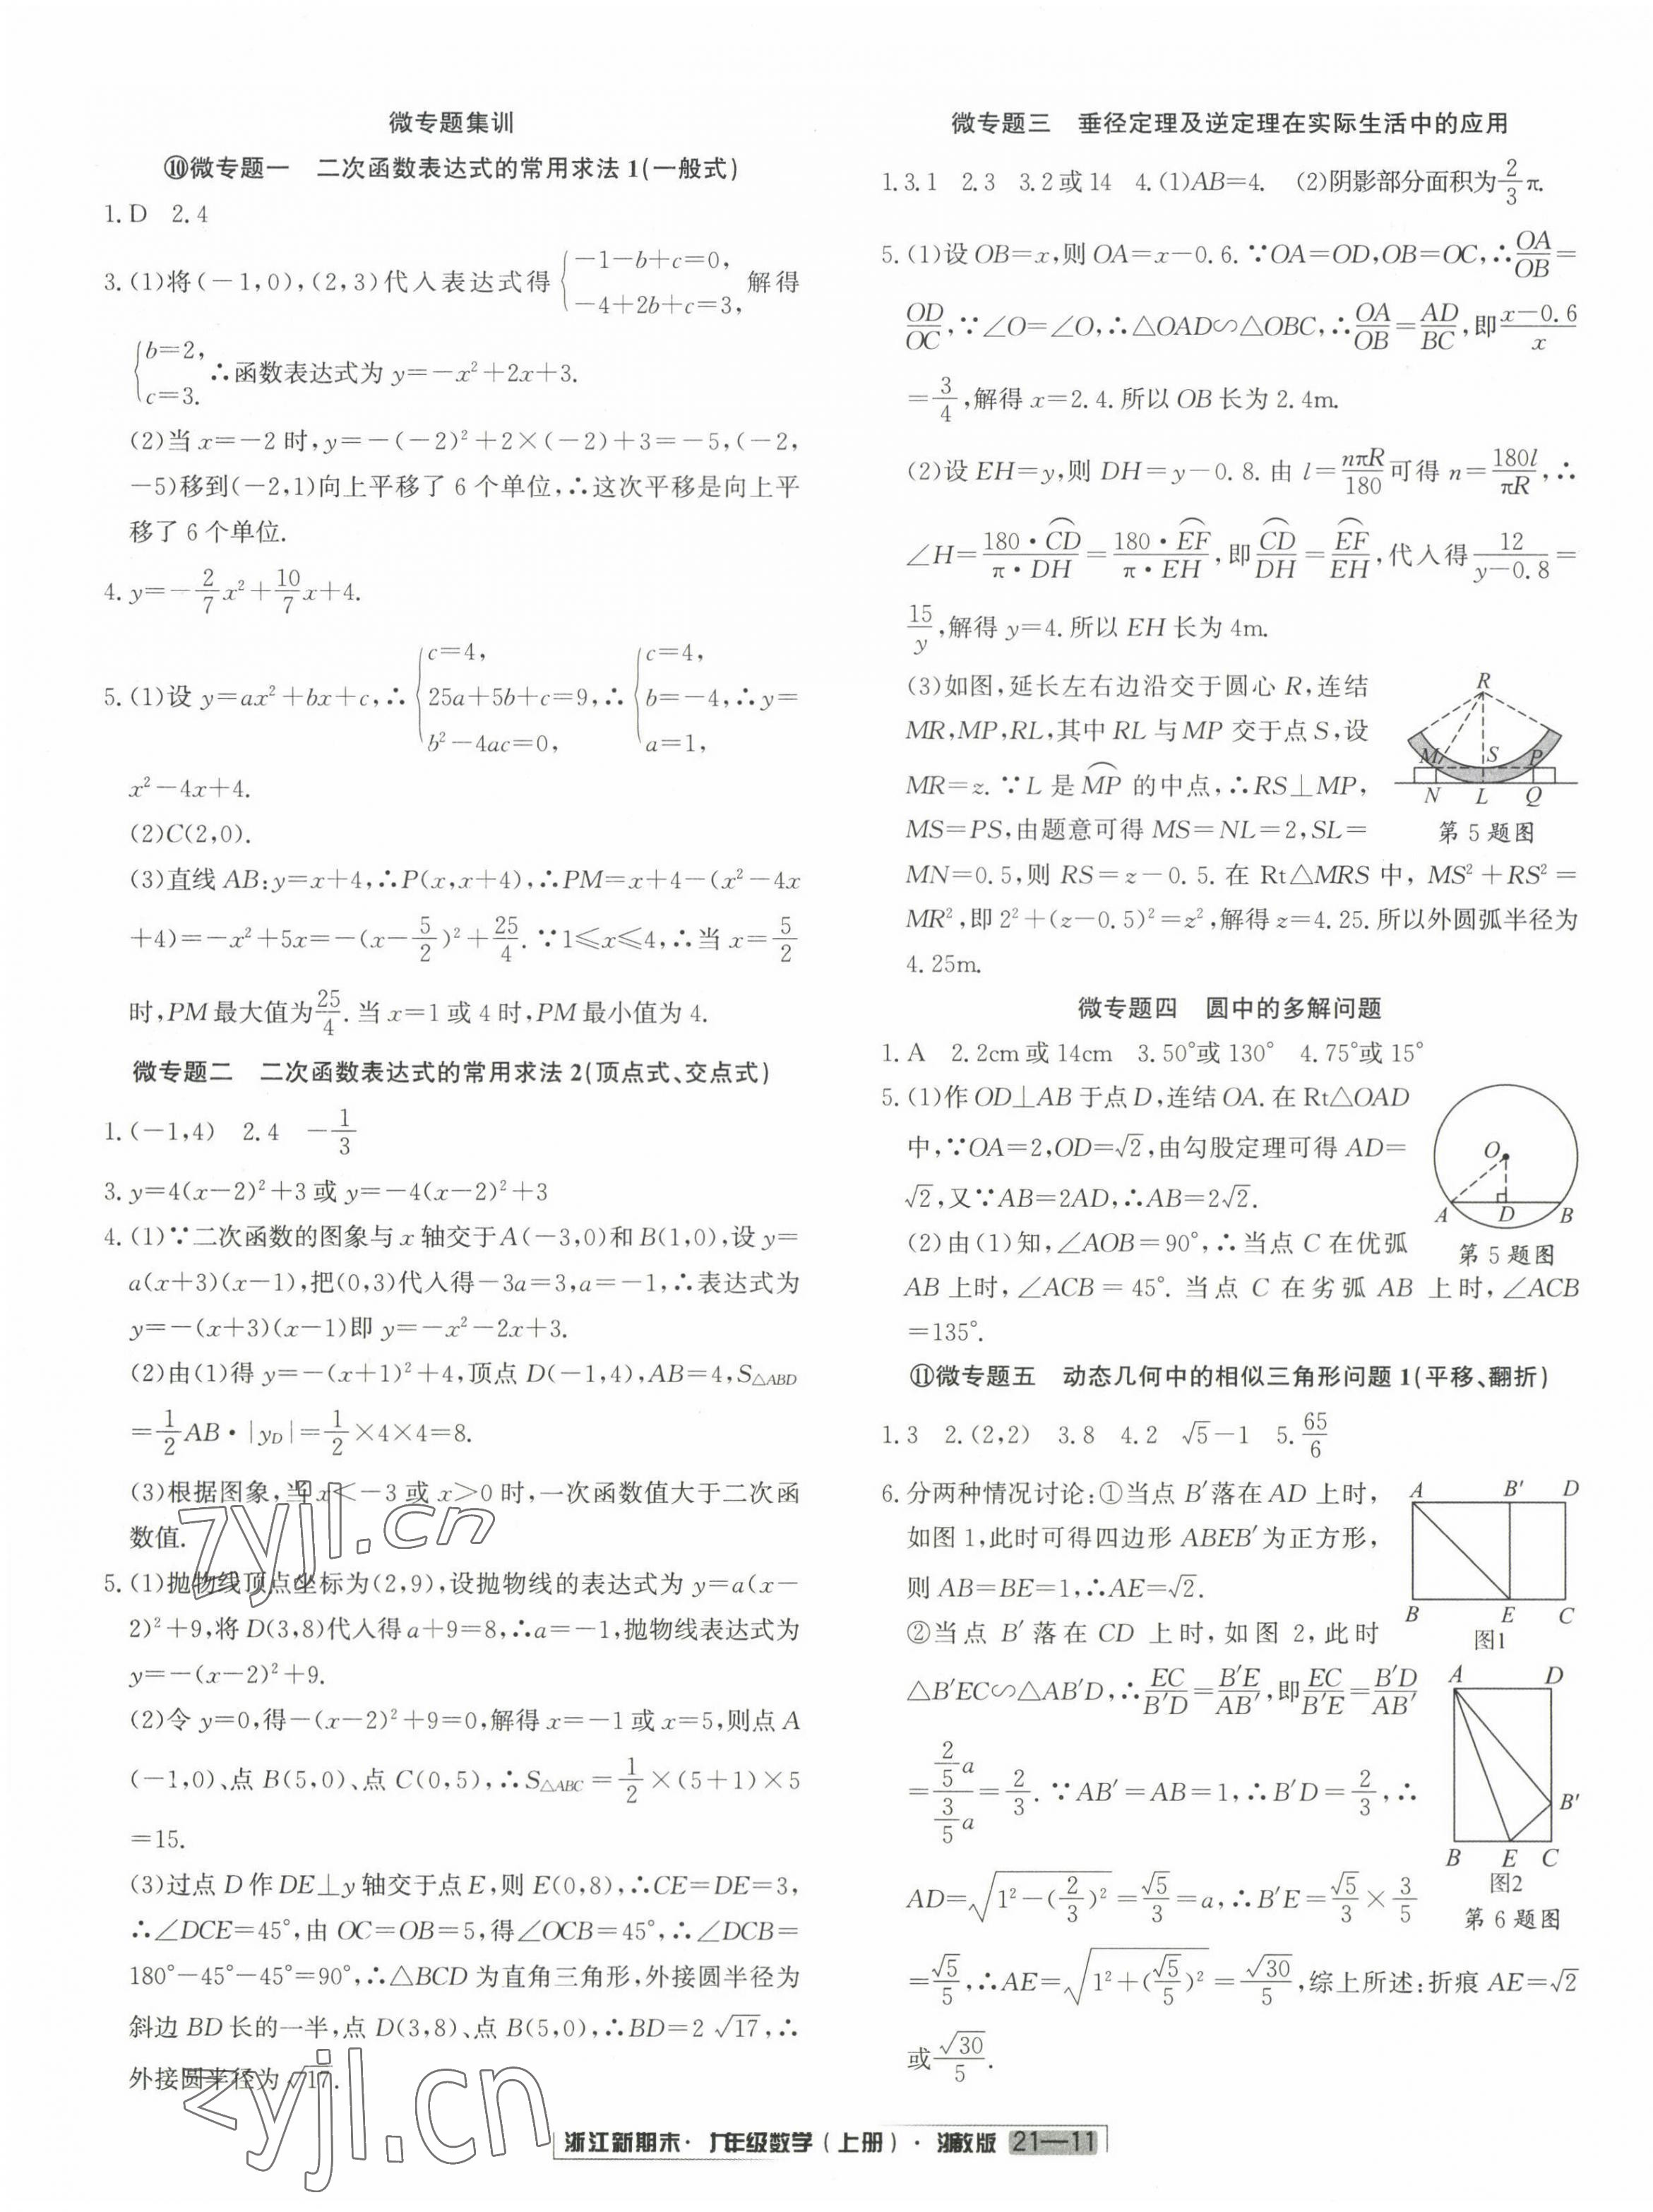 微专题集训
⑩微专题一 二次函数表达式的常用求法1(一般式)
1.D 2.4
3.(1)将(-1,0),(2,3)代入表达式得{-1-b+c=0, -4+2b+c=3, 解得
{b=2, c=3. ∴函数表达式为y=-x²+2x+3.
(2)当x=-2时,y=-(-2)²+2×(-2)+3=-5,(-2,
-5)移到(-2,1)向上平移了6个单位,∴这次平移是向上平
移了6个单位.
4.y=-2/7x²+10/7x+4.
5.(1)设y=ax²+bx+c,∴{c=4, 25a+5b+c=9, b²-4ac=0, ∴{c=4, b=-4, a=1, ∴y=
x²-4x+4.
(2)C(2,0).
(3)直线AB:y=x+4,∴P(x,x+4),∴PM=x+4-(x²-4x
+4)=-x²+5x=-(x-5/2)²+25/4.∵1≤x≤4,∴当x=5/2
时,PM最大值为25/4.当x=1或4时,PM最小值为4.
微专题二 二次函数表达式的常用求法2(顶点式、交点式)
1.(-1,4) 2.4 -1/3
3.y=4(x-2)²+3或y=-4(x-2)²+3
4.(1)∵二次函数的图象与x轴交于A(-3,0)和B(1,0),设y=
a(x+3)(x-1),把(0,3)代入得-3a=3,a=-1,∴表达式为
y=-(x+3)(x-1)即y=-x²-2x+3.
(2)由(1)得y=-(x+1)²+4,顶点D(-1,4),AB=4,S△ABD
=1/2AB·|yD|=1/2×4×4=8.
(3)根据图象,当x<-3或x>0时,一次函数值大于二次函
数值.
5.(1)抛物线顶点坐标为(2,9),设抛物线的表达式为y=a(x-
2)²+9,将D(3,8)代入得a+9=8,∴a=-1,抛物线表达式为
y=-(x-2)²+9.
(2)令y=0,得-(x-2)²+9=0,解得x=-1或x=5,则点A
(-1,0)、点B(5,0)、点C(0,5),∴S△ABC=1/2×(5+1)×5
=15.
(3)过点D作DE⊥y轴交于点E,则E(0,8),∴CE=DE=3,
∴∠DCE=45°,由OC=OB=5,得∠OCB=45°,∴∠DCB=
180°-45°-45°=90°,∴△BCD为直角三角形,外接圆半径为
斜边BD长的一半,点D(3,8)、点B(5,0),∴BD=2√17,∴
外接圆半径为√17.
微专题三 垂径定理及逆定理在实际生活中的应用
1.3.1 2.3 3.2或14 4.(1)AB=4. (2)阴影部分面积为2/3π.
5.(1)设OB=x,则OA=x-0.6.∵OA=OD,OB=OC,∴OA/OB=
OD/OC,∵∠O=∠O,∴△OAD∽△OBC,∴OA/OB=AD/BC,即(x-0.6)/x
=3/4,解得x=2.4.所以OB长为2.4m.
(2)设EH=y,则DH=y-0.8.由l=nπR/180可得n=180l/πR,∴
∠H=180·⌒CD/π·DH=180·⌒EF/π·EH,即⌒CD/DH=⌒EF/EH,代入得12/(y-0.8)=
15/y,解得y=4.所以EH长为4m.
(3)如图,延长左右边沿交于圆心R,连结
MR,MP,RL,其中RL与MP交于点S,设
MR=z.∵L是⌒MP的中点,∴RS⊥MP,
MS=PS,由题意可得MS=NL=2,SL=
MN=0.5,则RS=z-0.5.在Rt△MRS中,MS²+RS²=
MR²,即2²+(z-0.5)²=z²,解得z=4.25.所以外圆弧半径为
4.25m.
R
M S P
N L Q
第5题图
微专题四 圆中的多解问题
1.A 2.2cm或14cm 3.50°或130° 4.75°或15°
5.(1)作OD⊥AB于点D,连结OA.在Rt△OAD
中,∵OA=2,OD=√2,由勾股定理可得AD=
√2,又∵AB=2AD,∴AB=2√2.
(2)由(1)知,∠AOB=90°,∴当点C在优弧
AB上时,∠ACB=45°.当点C在劣弧AB上时,∠ACB
=135°.
O
A D B
第5题图
⑪微专题五 动态几何中的相似三角形问题1(平移、翻折)
1.3 2.(2,2) 3.8 4.2 √5-1 5.65/6
6.分两种情况讨论:①当点B′落在AD上时,
如图1,此时可得四边形ABEB′为正方形,
则AB=BE=1,∴AE=√2.
②当点B′落在CD上时,如图2,此时
△B′EC∽△AB′D,∴EC/B′D=B′E/AB′,即EC/B′E=B′D/AB′
=(2/5a)/(3/5a)=2/3.∵AB′=AB=1,∴B′D=2/3,∴
AD=√(1²-(2/3)²)=√5/3=a,∴B′E=√5/3×3/5
=√5/5,∴AE=√(1²+(√5/5)²)=√30/5,综上所述:折痕AE=√2
或√30/5.
A B′ D
B E C
图1
A D
B′
B E C
图2
第6题图
zyjl.cn
zyjl.cn
浙江新期末·九年级数学(上册)·浙教版 21—11